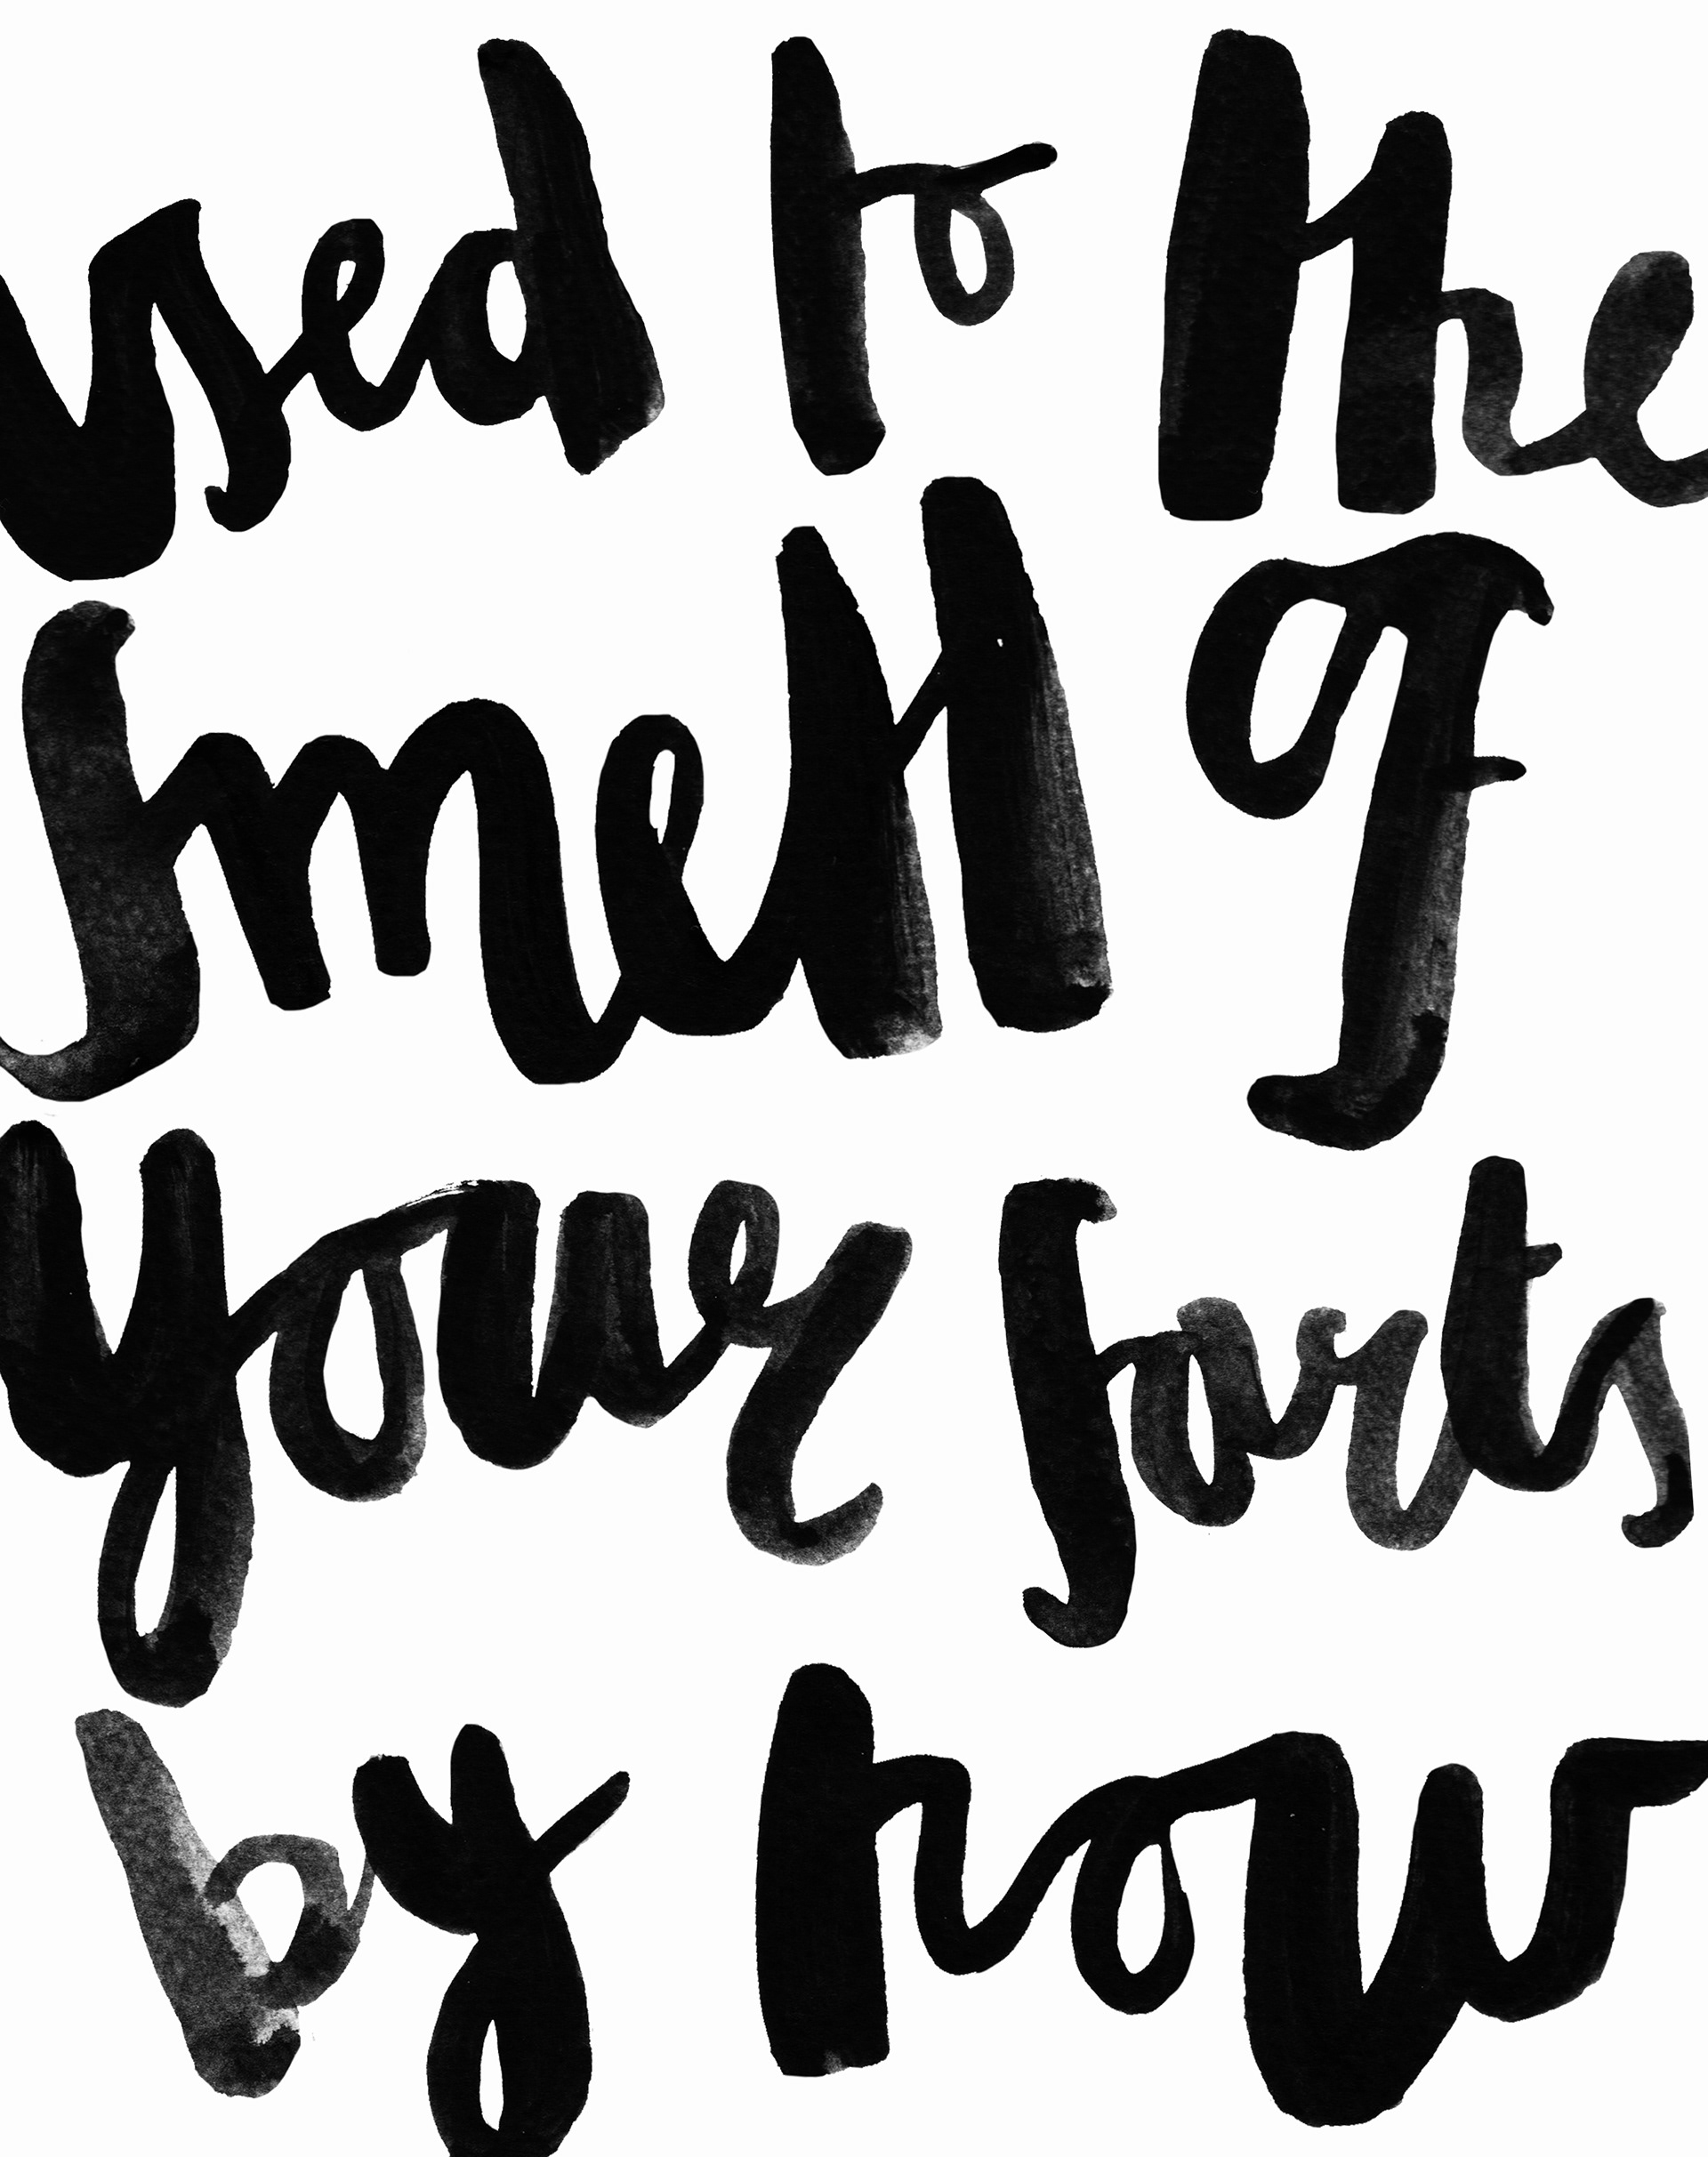 used to the
smell of
your farts
by now